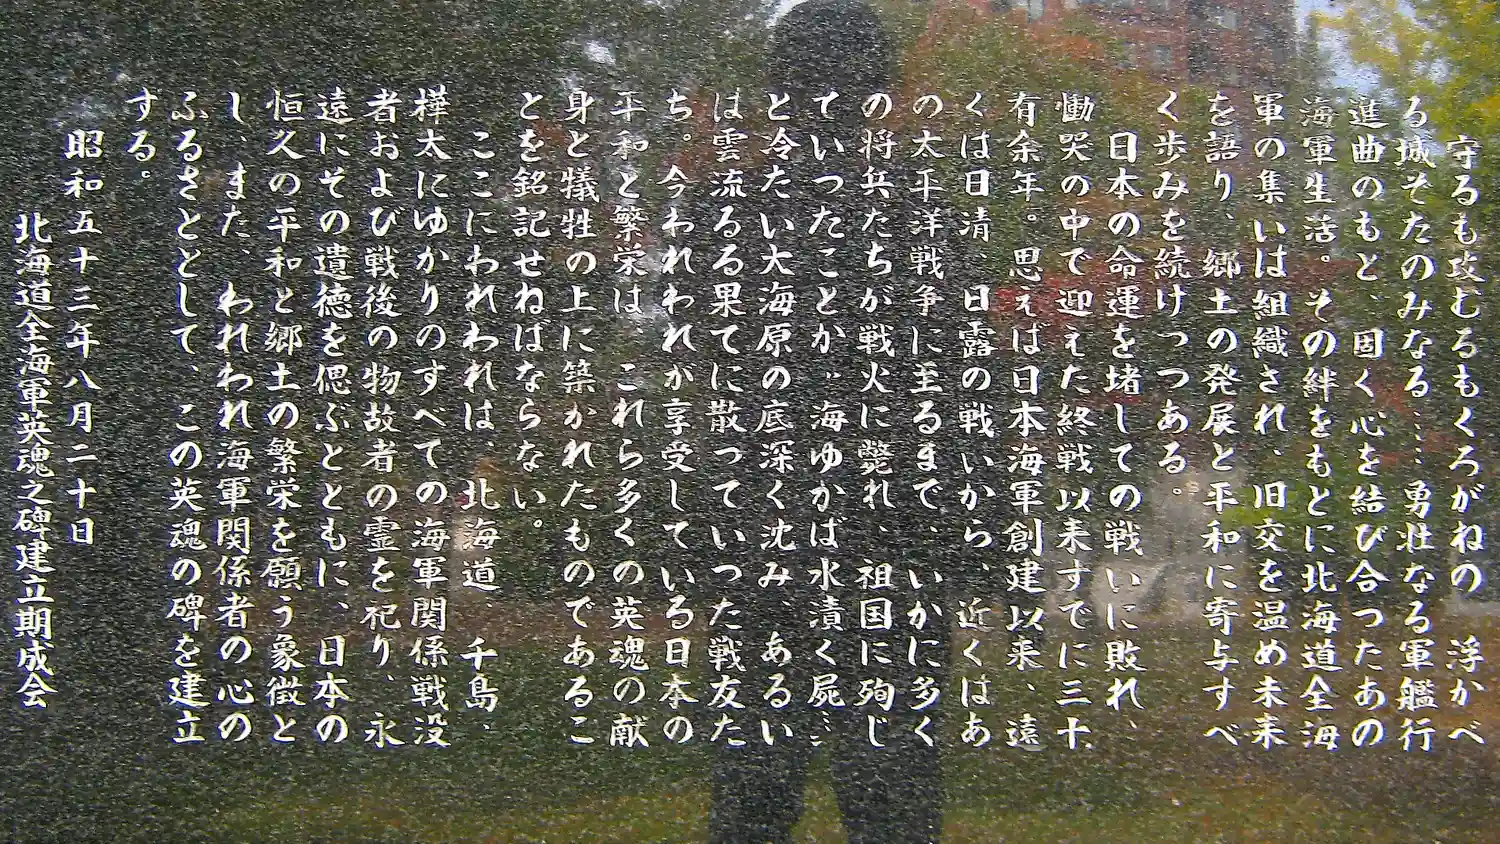 守るも攻むるもくろがねの　浮かべ
る城そたのみなる……勇壮なる軍艦行
進曲のもと、固く心を結び合つたあの
海軍生活。その絆をもとに北海道全海
軍の集いは組織され、旧交を温め未来
を語り、郷土の発展と平和に寄与すべ
く歩みを続けつつある。
日本の命運を堵しての戦いに敗れ、
慟哭の中で迎えた終戦以来すでに三十
有余年。思えば日本海軍創建以来、遠
くは日清、日露の戦いから、近くはあ
の太平洋戦争に至るまで、いかに多く
の将兵たちが戦火に斃れ、祖国に殉じ
ていつたことか〃海ゆかば水漬く屍……
と冷たい大海原の底深く沈み、あるい
は雲流るる果てに散っていつた戦友た
ち。今われわれが享受している日本の
平和と繁栄は、これら多くの英魂の献
身と犠牲の上に築かれたものであるこ
とを銘記せねばならない。
ここにわれわれは、北海道、千島、
樺太にゆかりのすべての海軍関係戦没
者および戦後の物故者の霊を祀り、永
遠にその遺徳を偲ぶとともに、日本の
恒久の平和と郷土の繁栄を願う象徴と
し、また、われわれ海軍関係者の心の
ふるさととして、この英魂の碑を建立
する。
昭和五十三年八月二十日
北海道全海軍英魂之碑建立期成会